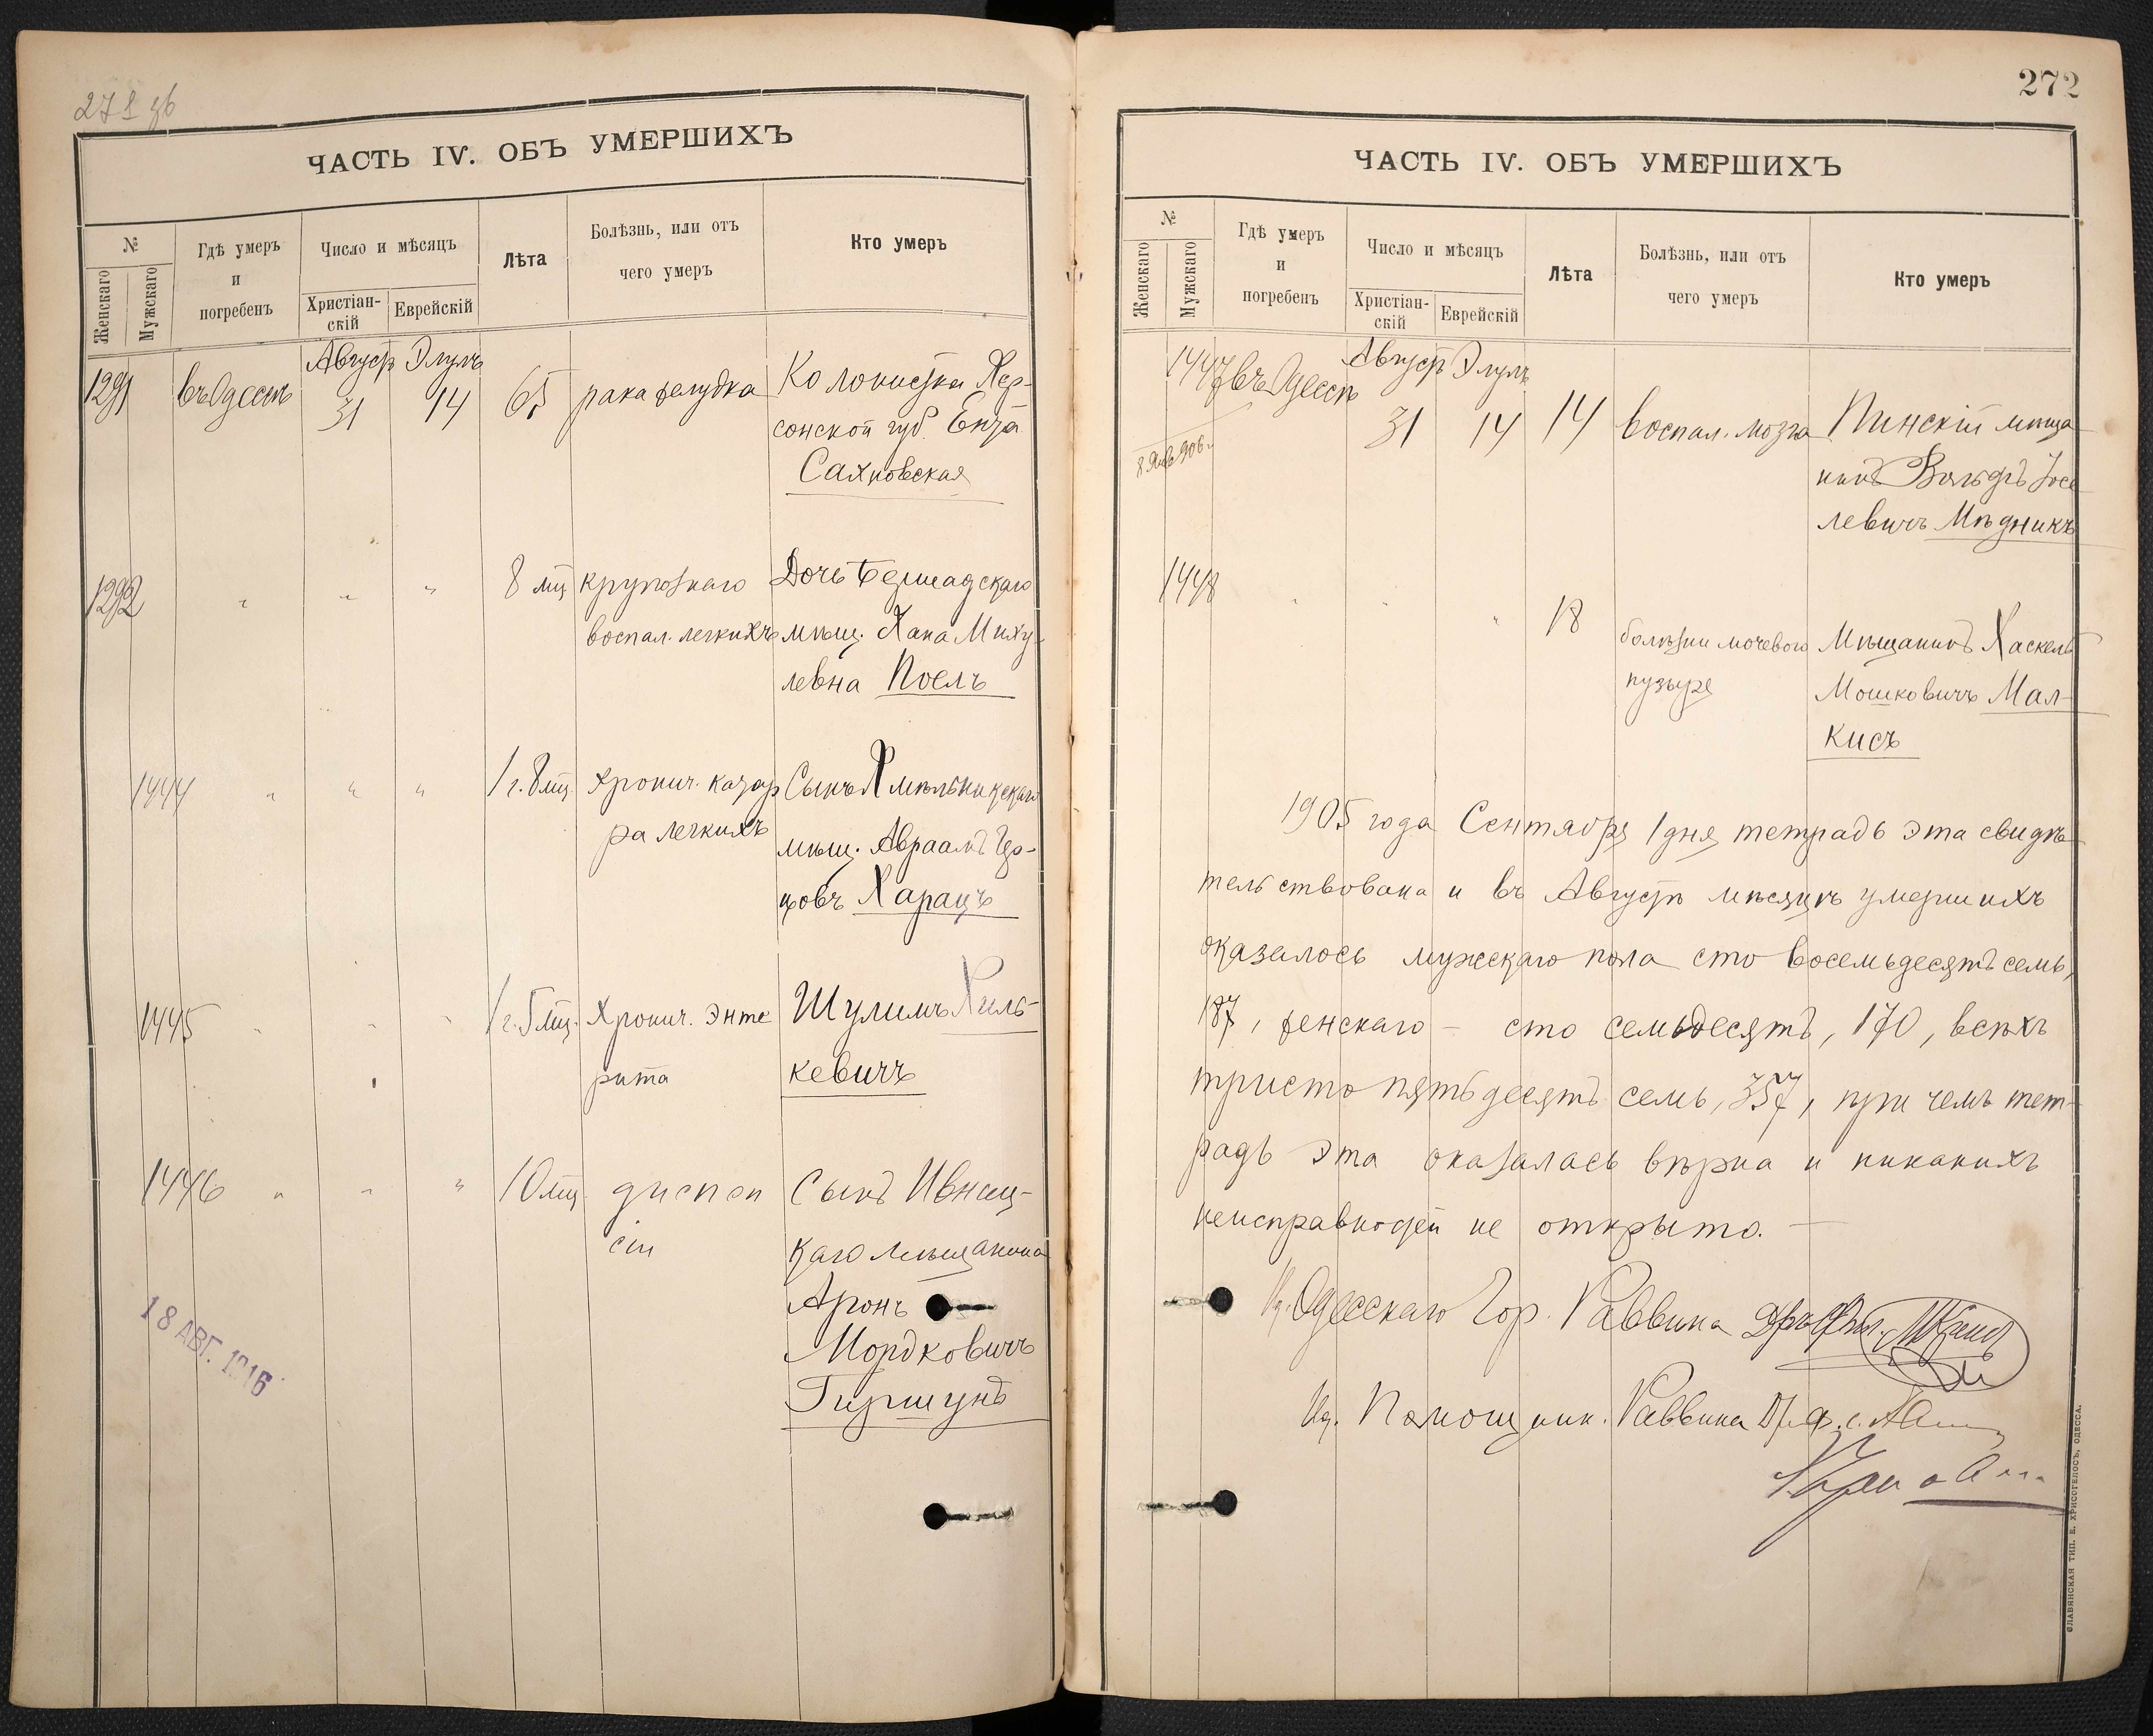 271 об
ЧАСТЬ IV. ОБЪ УМЕРШИХЪ
№
Женскаго
Мужскаго
Гдѣ умеръ
и
погребенъ
Число и мѣсяцъ
Христіан-
скій
Еврейскій
Лѣта
Болѣзнь, или отъ
чего умеръ
Кто умеръ
Август Элулъ
1291 въ Одессѣ 31 14 65 рака желудка Колонистка Хер-
сонской губ. Ента
Сахновская
1292 " " " 8 мц крупознаго Дочь Бершадскаго
воспал. легкихъ мѣщ. Хана Миху-
левна Поелъ
1444 " " " 1 г. 8 мц. хронич. катар Сынъ Хмѣльникскаго
ра легкихъ
мѣщ. Авраамъ Гер-
цовъ Харацъ
1445 " " " 1 г. 5 мц. Хронич. энте Шулимъ Хиль-
рита кевичъ
1446 " " " 10 мц диспеп Сынъ Ивнец-
сіи каго мѣщанина
Аронъ
Мордковичъ
Гиршунъ
18 АВГ. 1916
272
ЧАСТЬ IV. ОБЪ УМЕРШИХЪ
№
Женскаго
Мужскаго
Гдѣ умеръ
и
погребенъ
Число и мѣсяцъ
Христіан-
скій
Еврейскій
Лѣта
Болѣзнь, или отъ
чего умеръ
Кто умеръ
Август Элулъ
1447 въ Одессѣ 31 14 14 воспал. мозга Пинскій мѣща
8 Янв 906 г.
нинъ Вольфъ Іосе
левичъ Мѣдникъ
1448 " " " 18 болѣзни мочевого Мѣщанинъ Хаскель
пузыря Мошковичъ Мал-
кисъ
1905 года Сентября 1 дня тетрадь эта свидѣ-
тельствована и въ Августѣ мѣсяцѣ умершихъ
оказалось мужскаго пола сто восемьдесятъ семь,
187, женскаго – сто семьдесятъ, 170, всѣхъ
тристо пятьдесятъ семь, 357, при чемъ тет-
радь эта оказалась вѣрна и никакихъ
неисправностей не открыто. –
И.д. Одесскаго Гор. Раввина
И.д. Помощник. Раввина
СЛАВЯНСКАЯ ТИП. Е. ХРИСОГЕЛОСЪ, ОДЕССА.